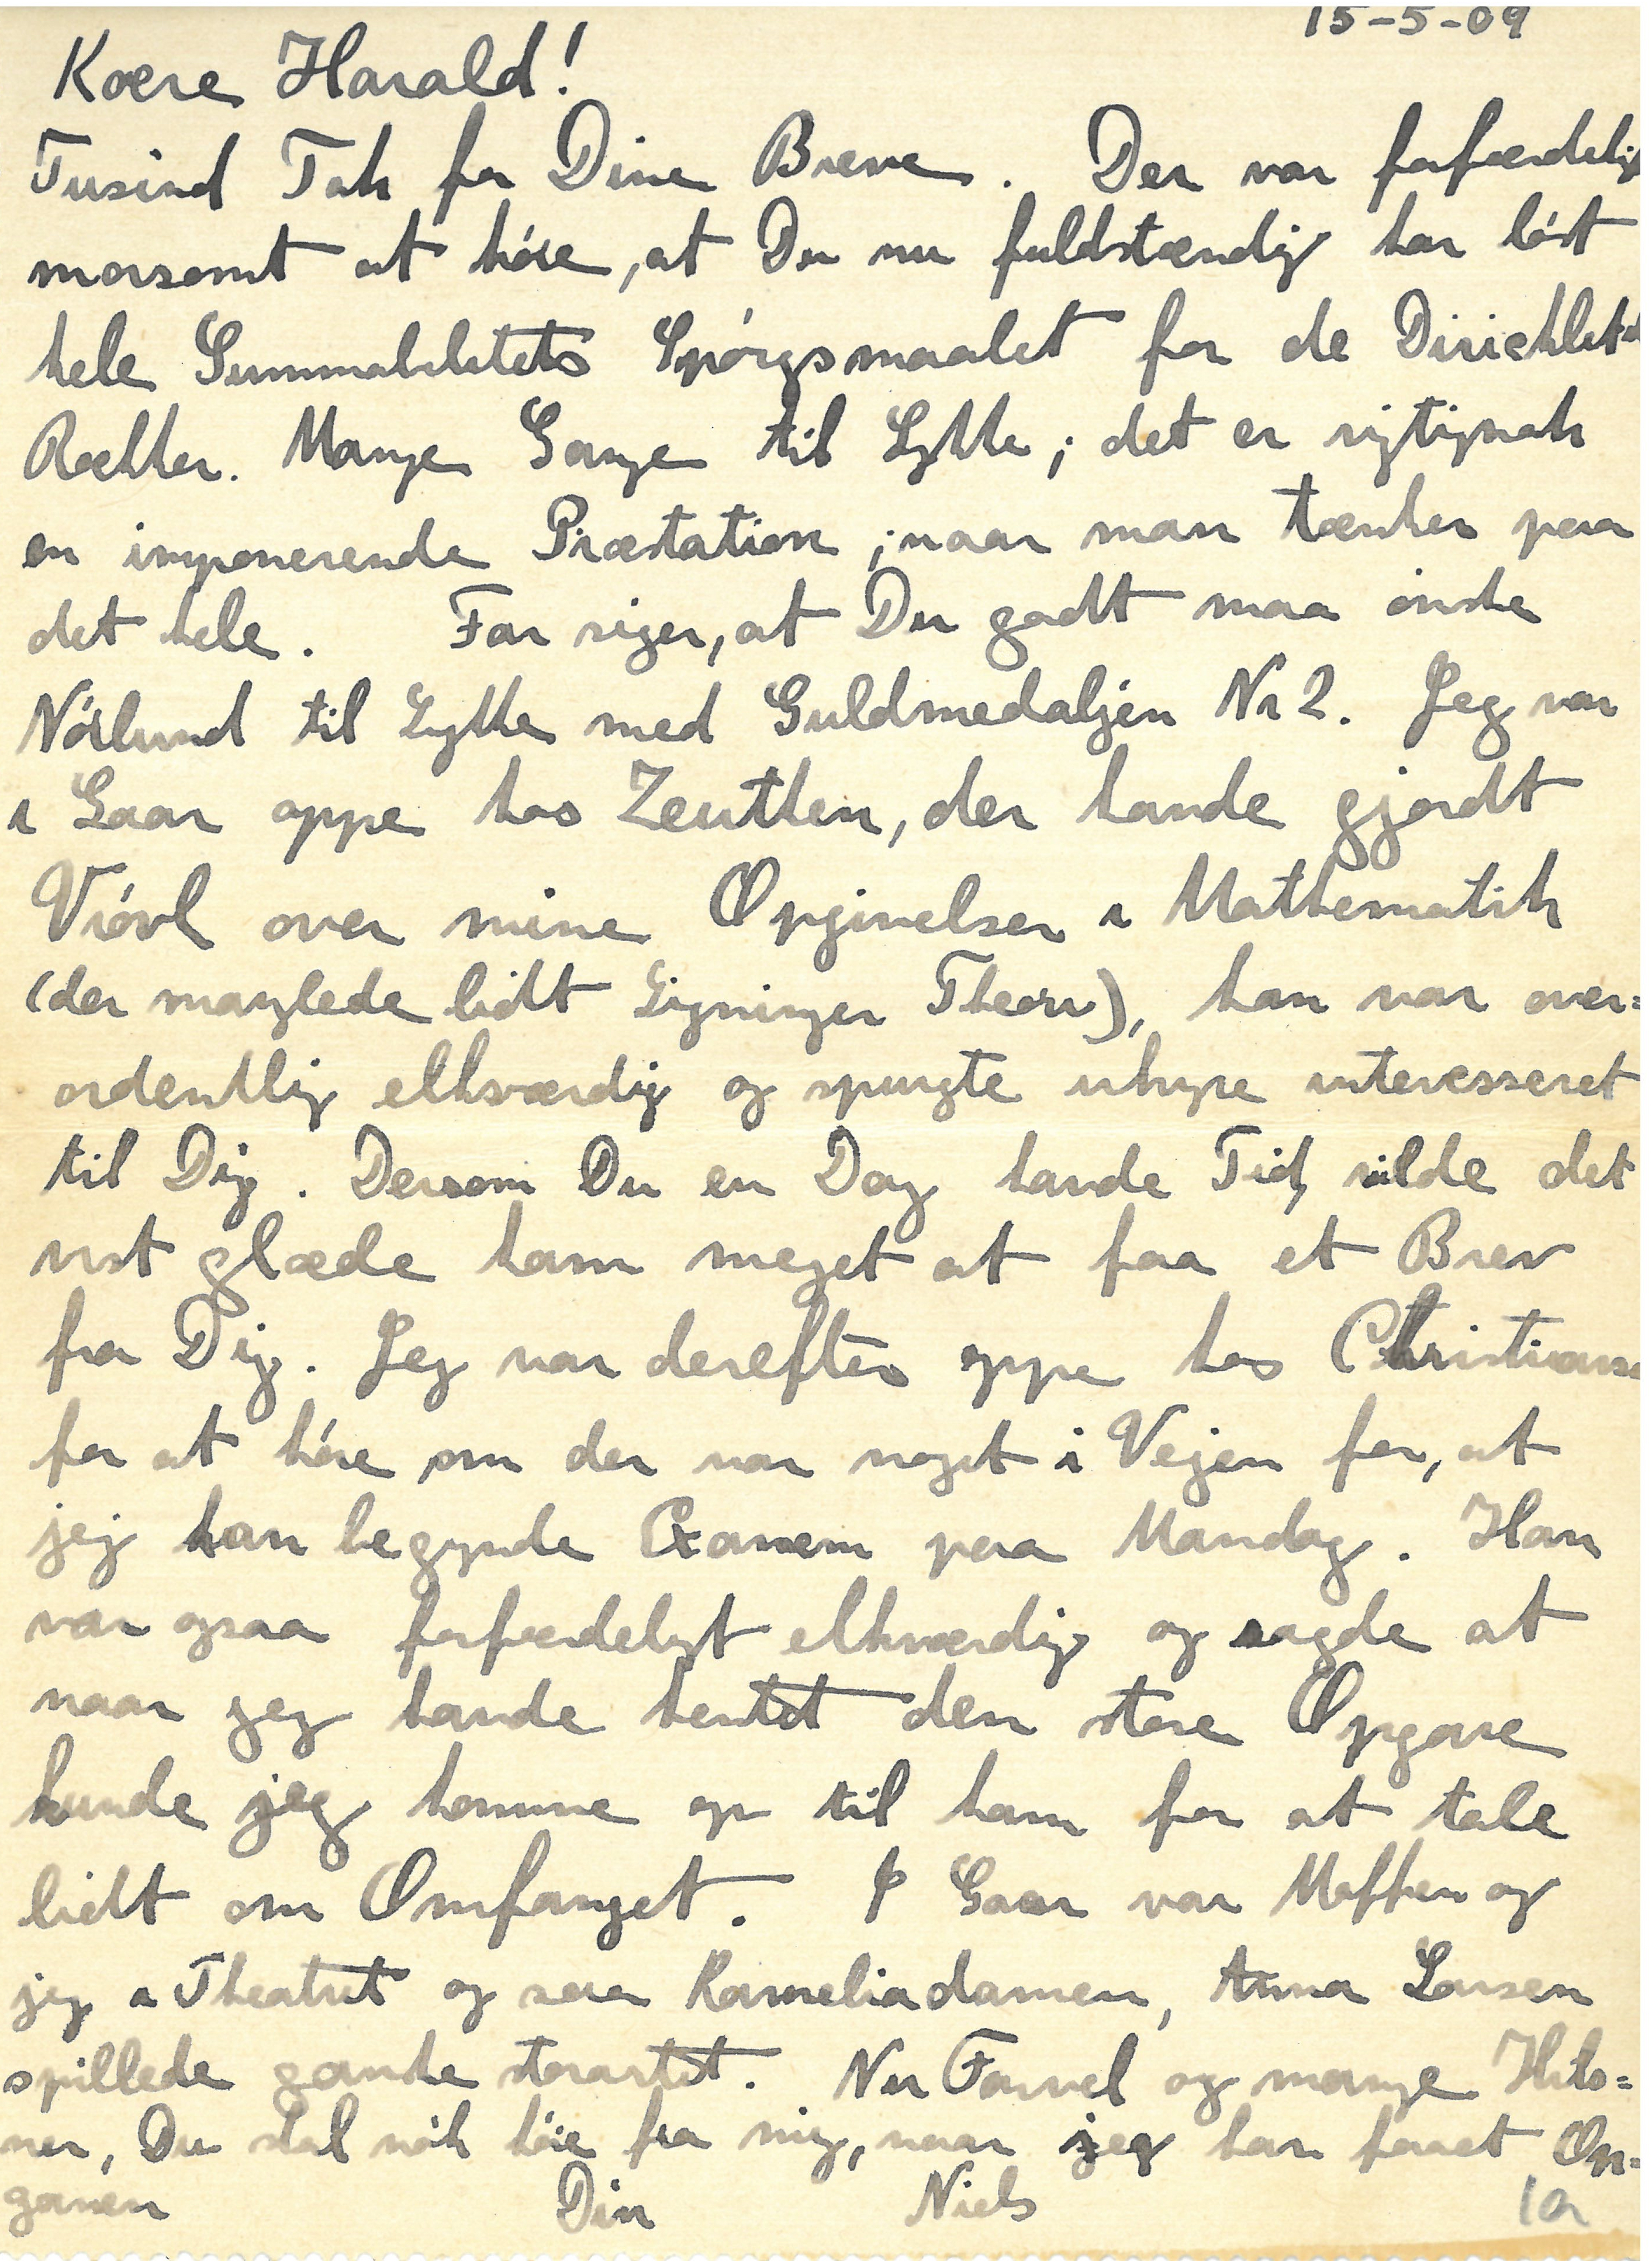 15-5-09
Kære Harald!
Tusind Tak for Dine Breve. Der var forfærdelig
morsomt at höre, at Du nu fuldstændig har löst
hele Summabilitets Spörgsmaalet for de Dirichlet'
Rækker. Mange Gange til Lykke; det er rigtignok
en imponerende Præstation, naar man tænker paa
det hele. Far siger, at Du godt maa önske
Nörlund til Lykke med Guldmedaljen Nr 2. Jeg var
i Gaar oppe hos Zeuthen, der havde gjordt
Vrövl over mine Opgivelser i Mathematik
(der manglede lidt Ligninger Theori), han var over=
ordentlig elskværdig og spurgte uhyre interesseret
til Dig. Dersom Du en Dag havde Tid, vilde det
vist glæde ham meget at faa et Brev
fra Dig. Jeg var derefter oppe hos Christianse
for at höre om der var noget i Vejen for, at
jeg kan begynde Examem paa Mandag. Han
var ogsaa forfærdeligt elskværdig og sagde at
naar jeg havde hentet den store Opgave
kunde jeg komme op til ham for at tale
lidt om Omfanget. I Gaar var Moffen og
jeg i Theatret og saa Kameliadamen, Anna Larsen
spillede ganske storartet. Nu Farvel og mange Hils=
ner, Du skal nok höre fra mig, naar jeg har faaet Op=
gaven Din Niels
1a